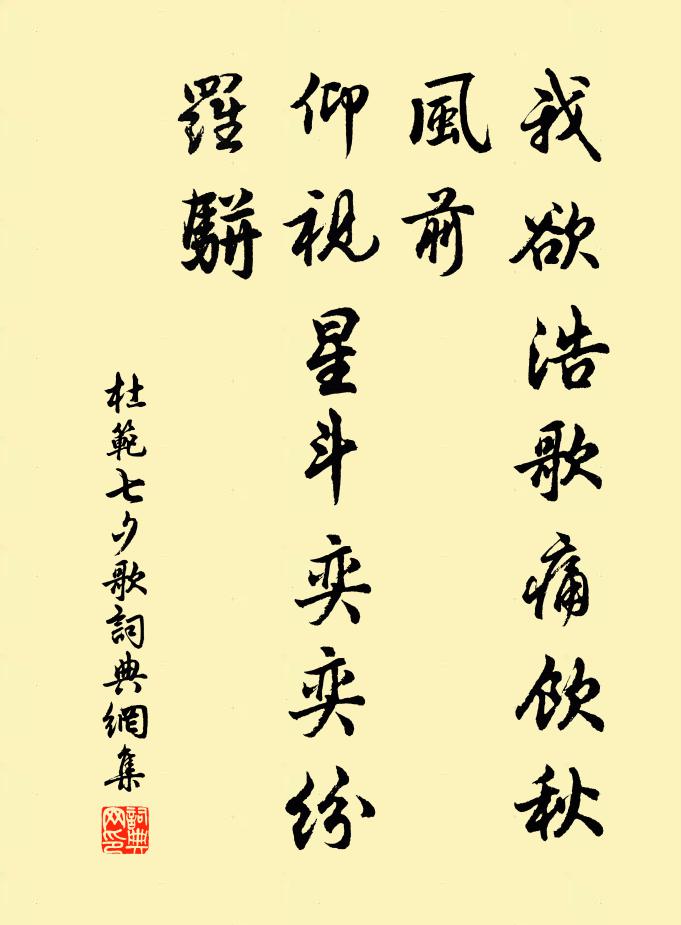 我欲浩歌痛飲秋
風前
仰視星斗奕奕紛
羅駢
杜範七夕歌詞典網集
詞典网印